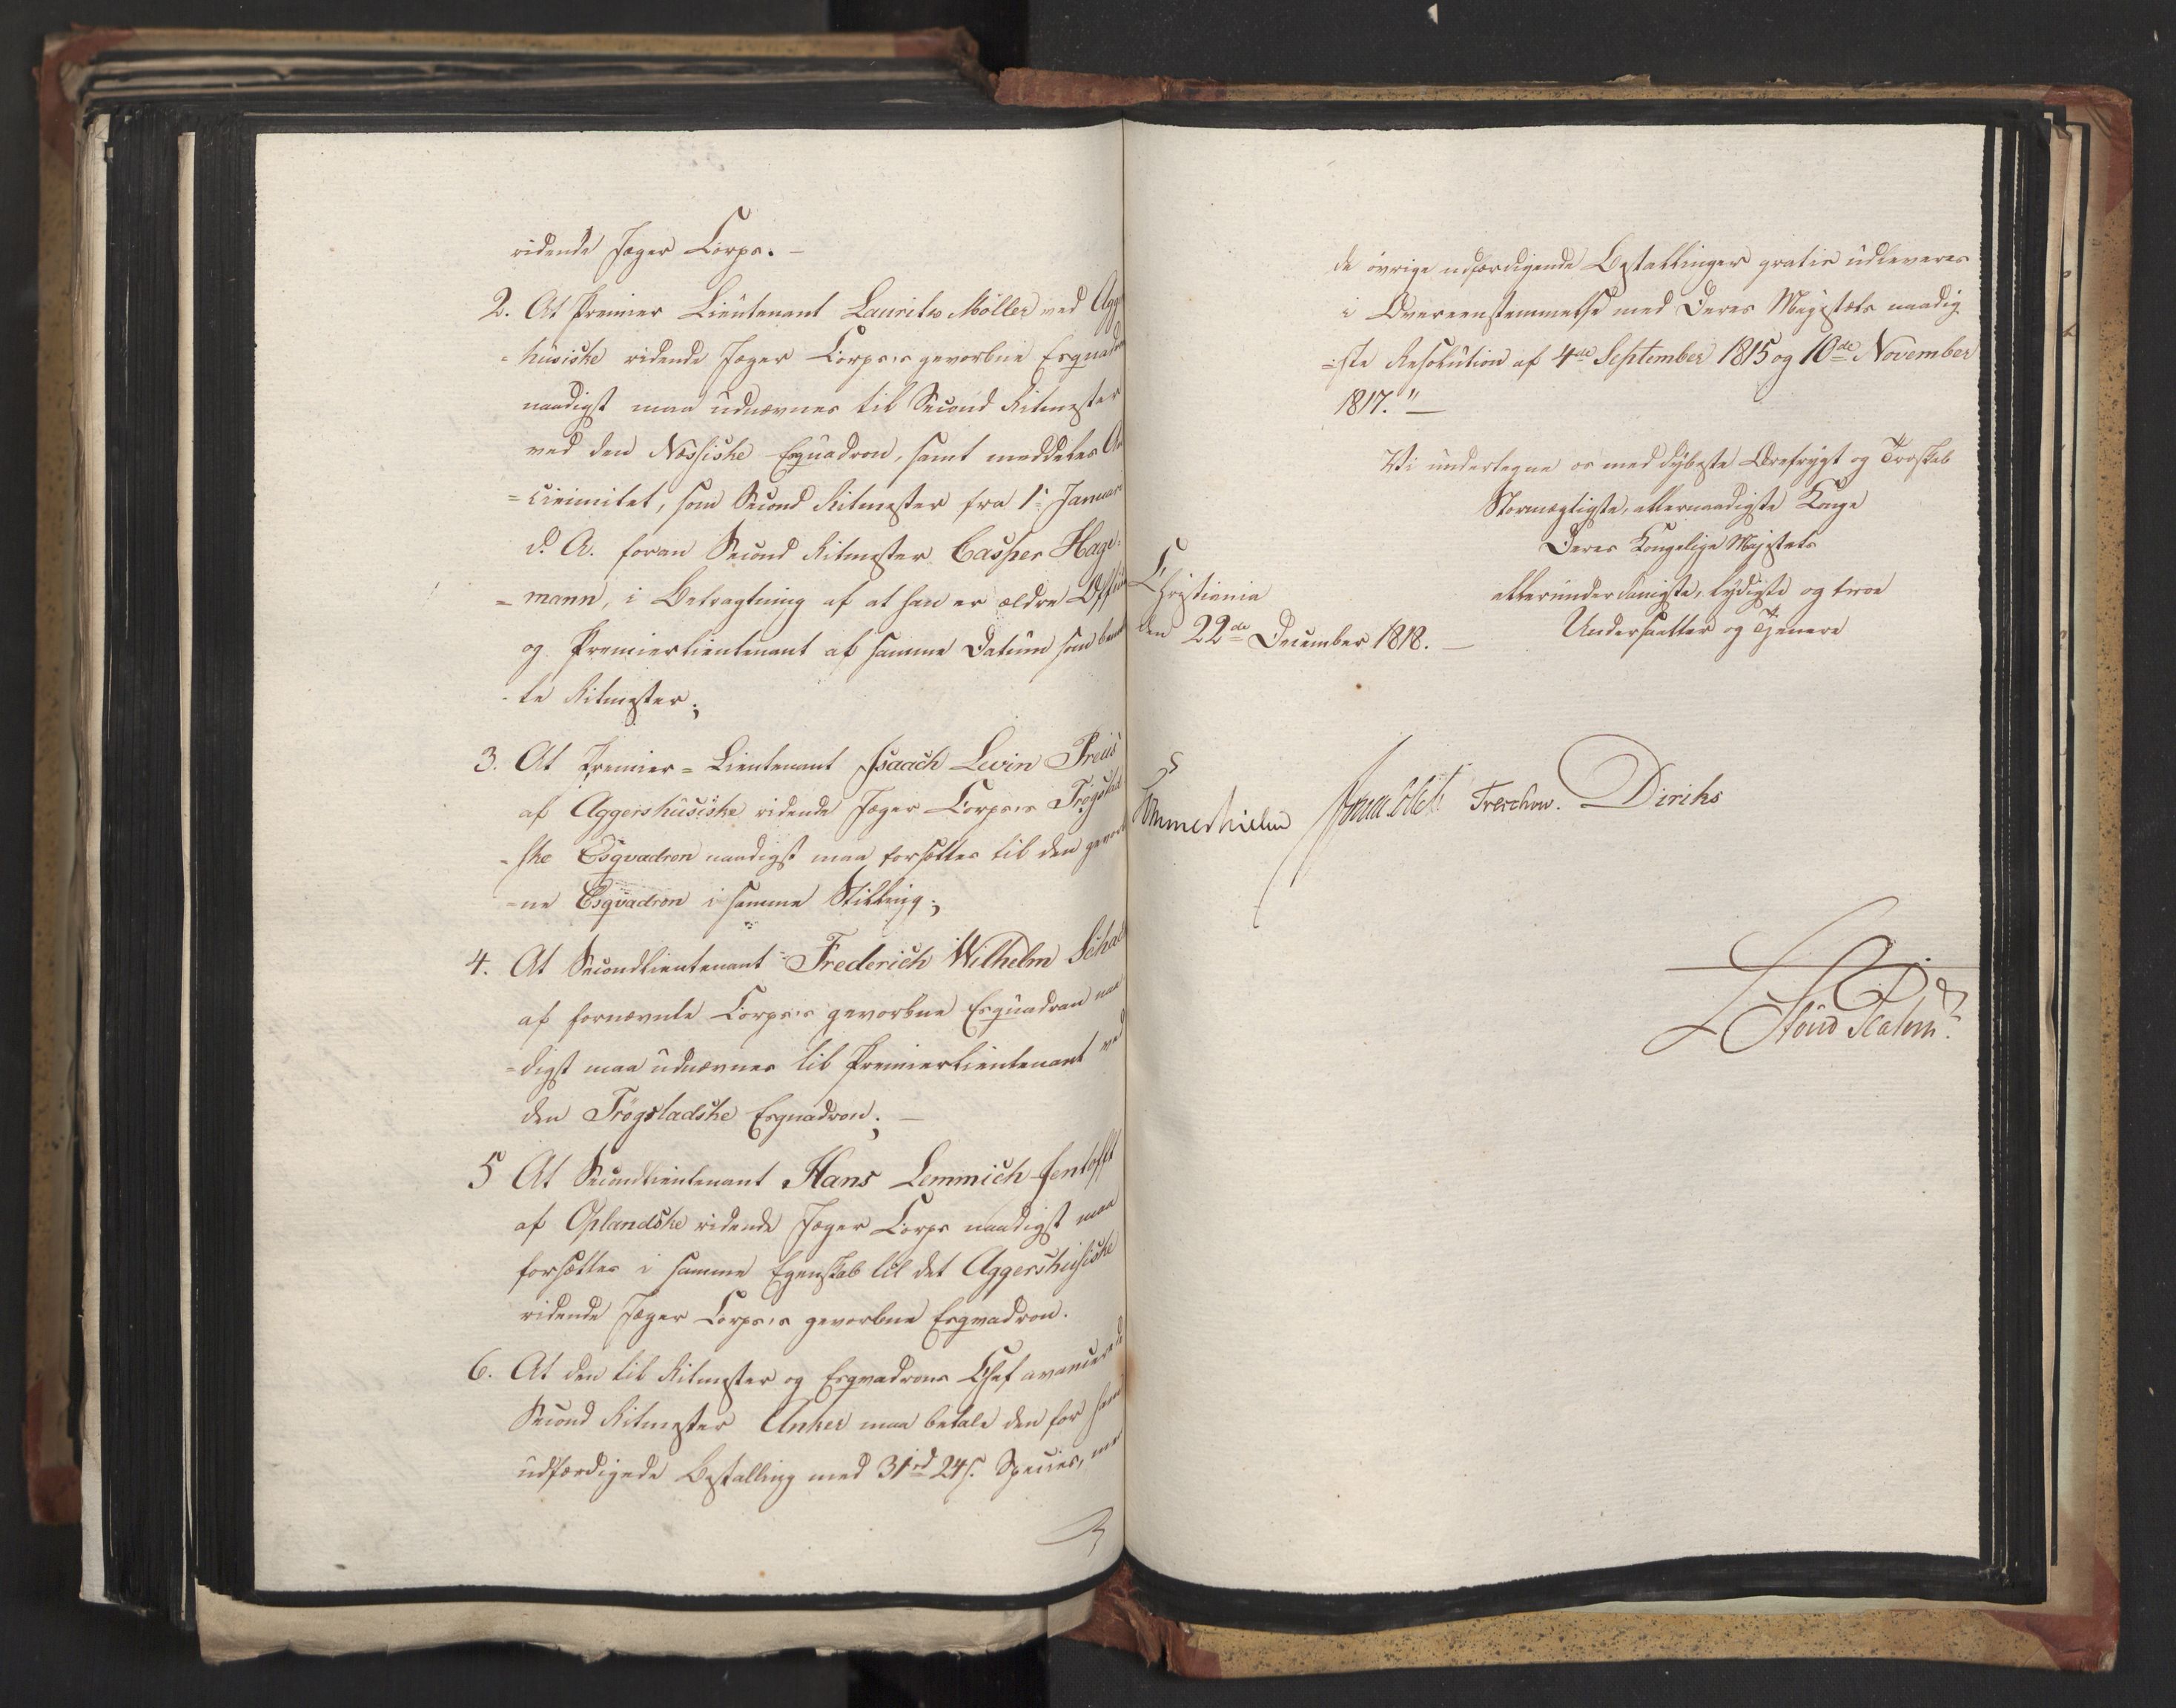 ridende Jæger Corps. –
2. At Premier Lieutenant Lauritz Möller ved Agg
=husiske ridende Jæger Corps's gevorbne Esquadron
naadigst maa udnævnes til Second Ritmester
ved den Næssiske Esquadron, samt meddeles An
=cienitet, som Second Ritmester fra 1ste Januari
d. A. foran Second Ritmester Casper Hage=
=mann, i Betragtning af at han er ældre Officier
og Premierlieutenant af samme Datum som bemeld
te Ritmester;
3. At Premier=Lieutenant Isaach Levin Preus
af Aggershusiske ridende Jæger Corps's Trögstad
=ske Esqvadron naadigst maa forsættes til den gevorb
=ne Esqvadron i samme Stilling;
4. At Secondlieutenant Frederich Wilhelm
af fornævnte Corps's gevorbne Esquadron naa
=digst maa udnævnes til Premierlieutenant ved
den Trögstadske Esquadron; –
5 At Secondlieutenant Hans Lemmich Jentofft
af Oplandske ridende Jæger Corps naadigst maa
forsættes i samme Egenskab til det Aggershusiske
ridende Jæger Corps's gevorbne Esqvadron.
6. At den til Ritmester og Esqvadrons Chef avancerede
Second Ritmester Anker maa betale den for ham
udfærdigede Bestalling med 31 rd 24 s. Species, men
de övrige udfærdigende Bestallinger gratis udleveres
i Overeenstemmelse med Deres Majestæts naadig
=ste Resolution af 4de September 1815 og 10de November
1817." –
Vi undertegne os med dybeste Ærefrygt og Troskab
Stormægtigste, allernaadigste Konge
Deres Kongelige Majestæts
allerunderdanigste, lydigste og troe
Undersaatter og Tjenere
Christiania
den 22de December 1818. –
Sommerhielm Treschow. Diriks